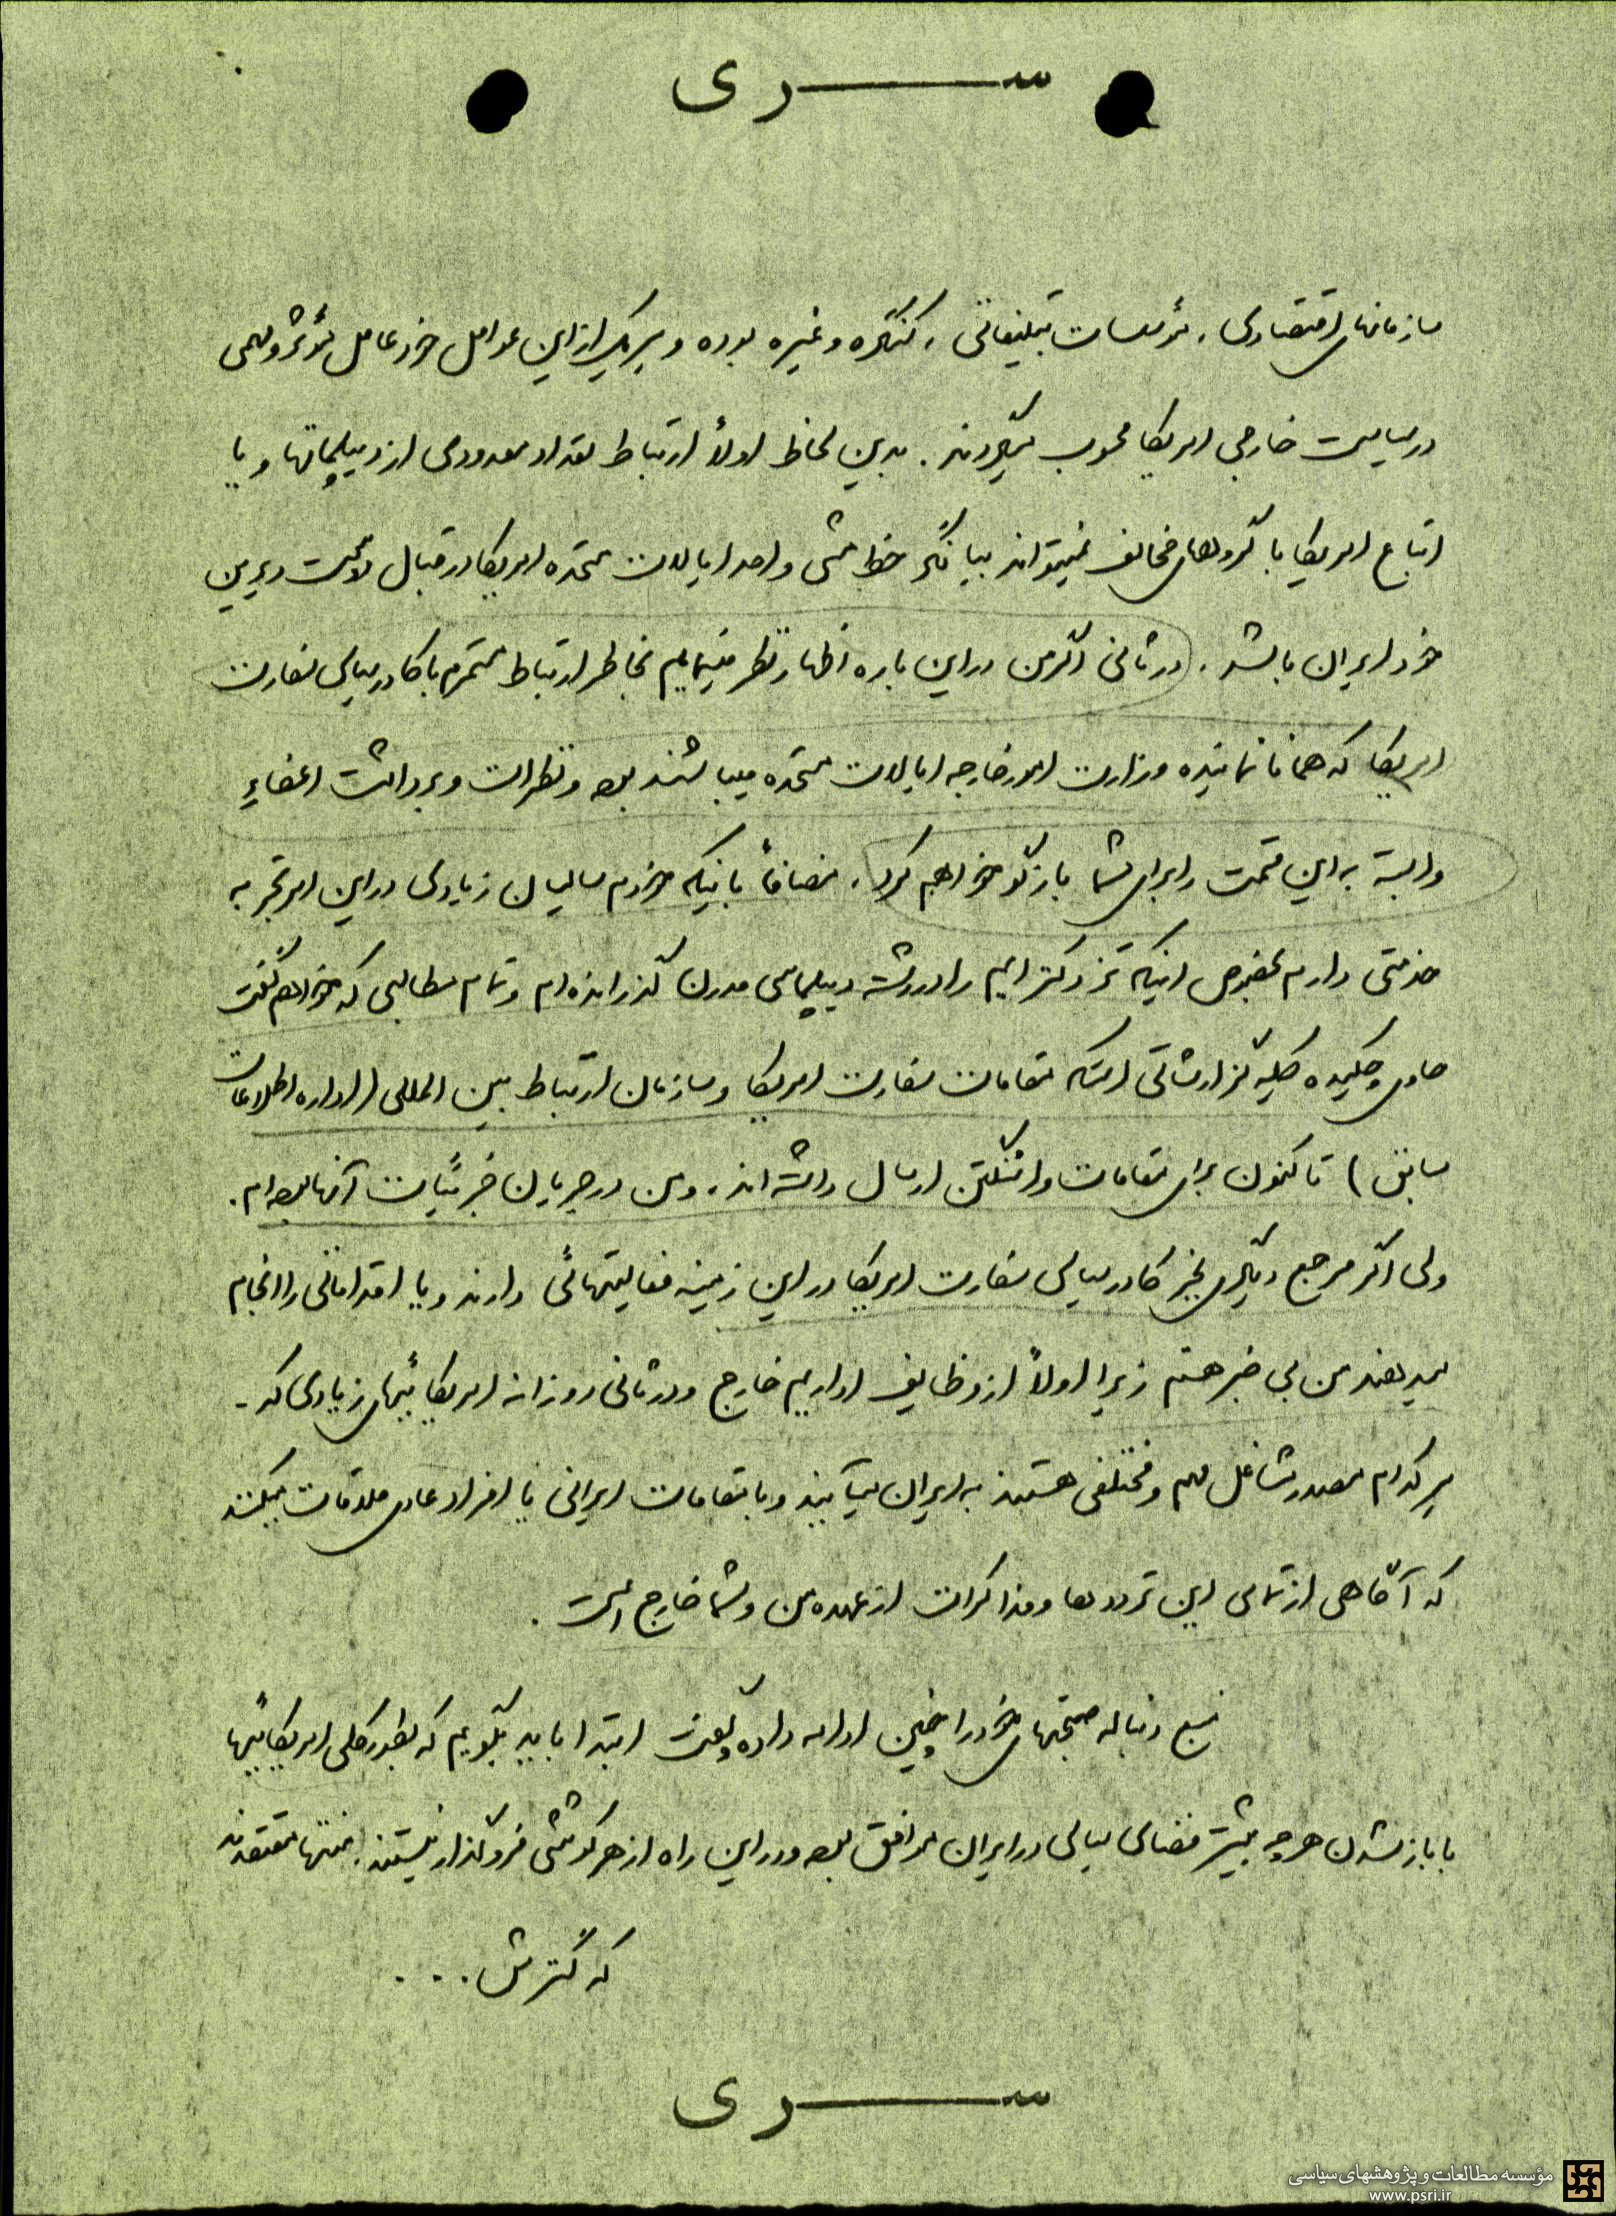 ســـری
سازمانهای اقتصادی، مؤسسات تبلیغاتی، کنگره و غیره بوده و هریک از این عوامل خود عامل مؤثر و مهمی
در سیاست خارجی امریکا محسوب میگردند. بدین لحاظ اولاً ارتباط تعداد معدودی از دیپلماتها و یا
اتباع امریکا با گروههای مخالف نمیتواند بیانگر خط مشی واحد ایالات متحده امریکا در قبال دوست دیرین
خود ایران باشد. در ثانی اگر من در این باره اظهار نظر مینمایم بخاطر ارتباط مستمرم با کادر سیاسی سفارت
امریکا که همانا نماینده وزارت امور خارجه ایالات متحده میباشند بوده و نظرات و برداشت اعضاء
وابسته به این قسمت را برای شما بازگو خواهم کرد. مضافاً باینکه خودم سالیان زیادی در این امر تجربه
خدمتی دارم بخصوص اینکه تز دکترایم را در رشته دیپلماسی مدرن گذرانده‌ام و تمام مطالبی که خواهم گفت
حاوی چکیده کلیه گزارشاتی است که مقامات سفارت امریکا و سازمان ارتباط بین المللی (اداره اطلاعات
سابق) تا کنون برای مقامات واشنگتن ارسال داشته‌اند. و من در جریان جزئیات آنها بوده‌ام.
ولی اگر مرجع دیگری بجز کادر سیاسی سفارت امریکا در این زمینه فعالیتهائی دارند و یا اقداماتی را انجام
میدهند من بی خبر هستم زیرا اولاً از وظایف اداریم خارج و در ثانی روزانه امریکائیهای زیادی که -
هر کدام مصدر مشاغل مهم و مختلفی هستند به ایران میآیند و با مقامات ایرانی یا افراد عادی ملاقات میکنند
که آگاهی از تمامی این تردد ها و مذاکرات از عهده من و شما خارج است.
منبع دنباله صحبتهای خود را چنین ادامه داده و گفت ابتدا باید بگویم که بطور کلی امریکائیها
با باز شدن هر چه بیشتر فضای سیاسی در ایران موافق بوده و در این راه از هر کوششی فروگذار نیستند. منتها معتقدند
که گسترش . . .
ســـری
مؤسسه مطالعات و پژوهشهای سیاسی
www.psri.ir